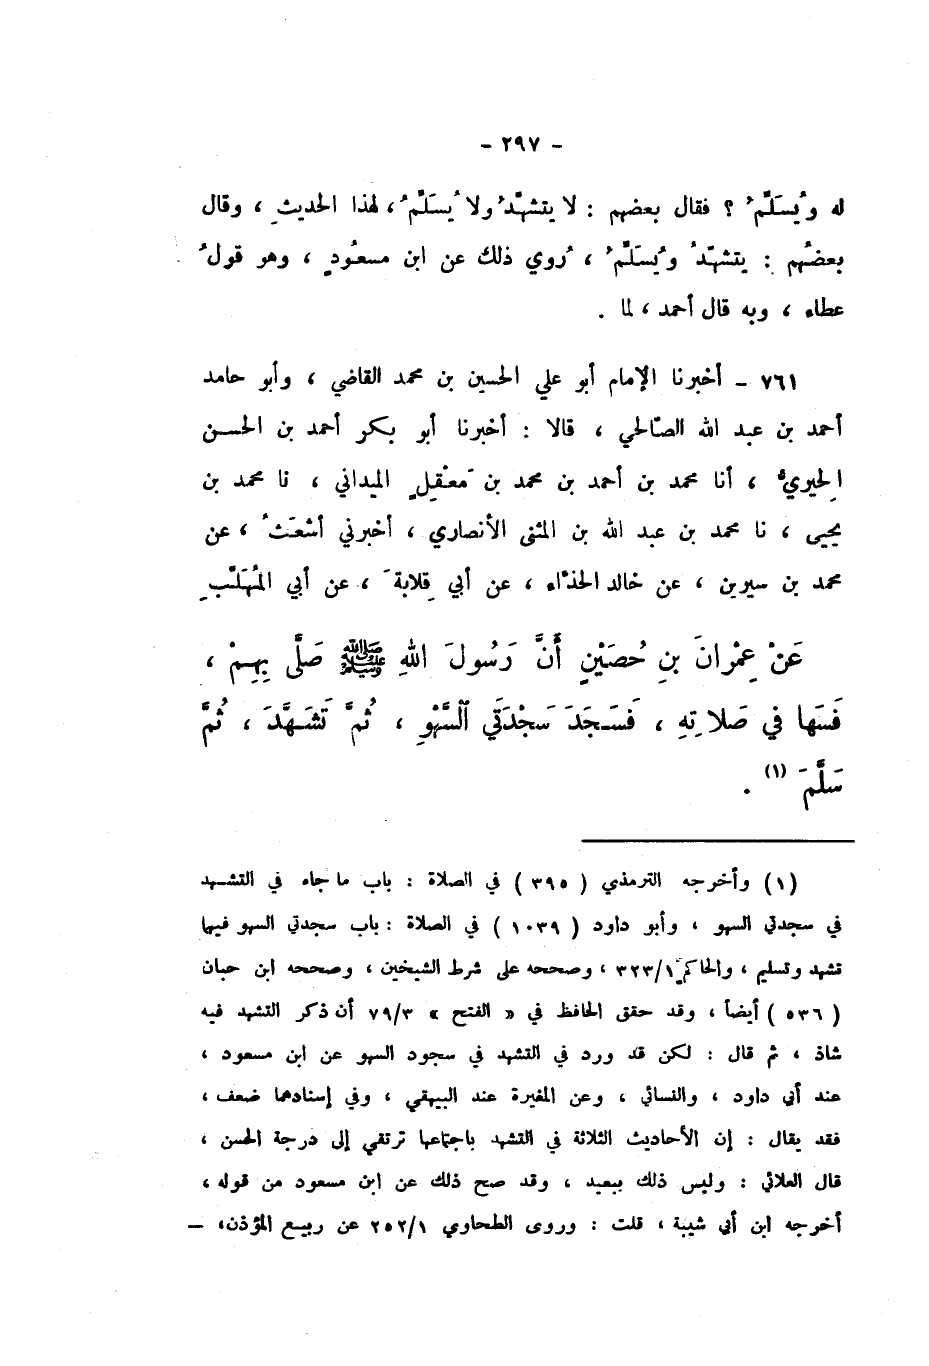 - ٢٩٧ -
له ويُسَلِّمُ ؟ فقال بعضهم : لا يتشهّدُ ولا يُسَلِّمُ ، لهذا الحديثِ ، وقال
بعضُهم : يتشهّدُ ويُسَلِّمُ ، رُوي ذلك عن ابن مسعُودٍ ، وهو قولُ
عطاء ، وبه قال أحمد ، لما .
٧٦١ - أخبرنا الإمام أبو علي الحسين بن محمد القاضي ، وأبو حامد
أحمد بن عبد الله الصّالحي ، قالا : أخبرنا أبو بكر أحمد بن الحسن
الحِيري ، أنا محمد بن أحمد بن محمد بن مَعْقِلٍ الميداني ، نا محمد بن
يحيى ، نا محمد بن عبد الله بن المثنى الأنصاري ، أخبرني أشْعَثُ ، عن
محمد بن سيرين ، عن خالد الحذّاء ، عن أبي قِلابةَ ، عن أبي المُهَلَّبِ
عَنْ عِمْرانَ بنِ حُصَيْنٍ أَنَّ رَسُولَ اللهِ ﷺ صَلَّى بِهِمْ ،
فَسَها في صَلاتِهِ ، فَسَجَدَ سَجْدَتَيِ السَّهْوِ ، ثُمَّ تَشَهَّدَ ، ثُمَّ
سَلَّمَ (١) .
(١) وأخرجه الترمذي ( ٣٩٥ ) في الصلاة : باب ما جاء في التشهد
في سجدتي السهو ، وأبو داود ( ١٠٣٩ ) في الصلاة : باب سجدتي السهو فيها
تشهد وتسليم ، والحاكم ٣٢٣/١ ، وصححه على شرط الشيخين ، وصححه ابن حبان
( ٥٣٦ ) أيضاً ، وقد حقق الحافظ في « الفتح » ٧٩/٣ أن ذكر التشهد فيه
شاذ ، ثم قال : لكن قد ورد في التشهد في سجود السهو عن ابن مسعود ،
عند أبي داود ، والنسائي ، وعن المغيرة عند البيهقي ، وفي إسنادهما ضعف ،
فقد يقال : إن الأحاديث الثلاثة في التشهد باجتماعها ترتقي إلى درجة الحسن ،
قال العلائي : وليس ذلك ببعيد ، وقد صح ذلك عن ابن مسعود من قوله ،
أخرجه ابن أبي شيبة ، قلت : وروى الطحاوي ٢٥٢/١ عن ربيع المؤذن، —